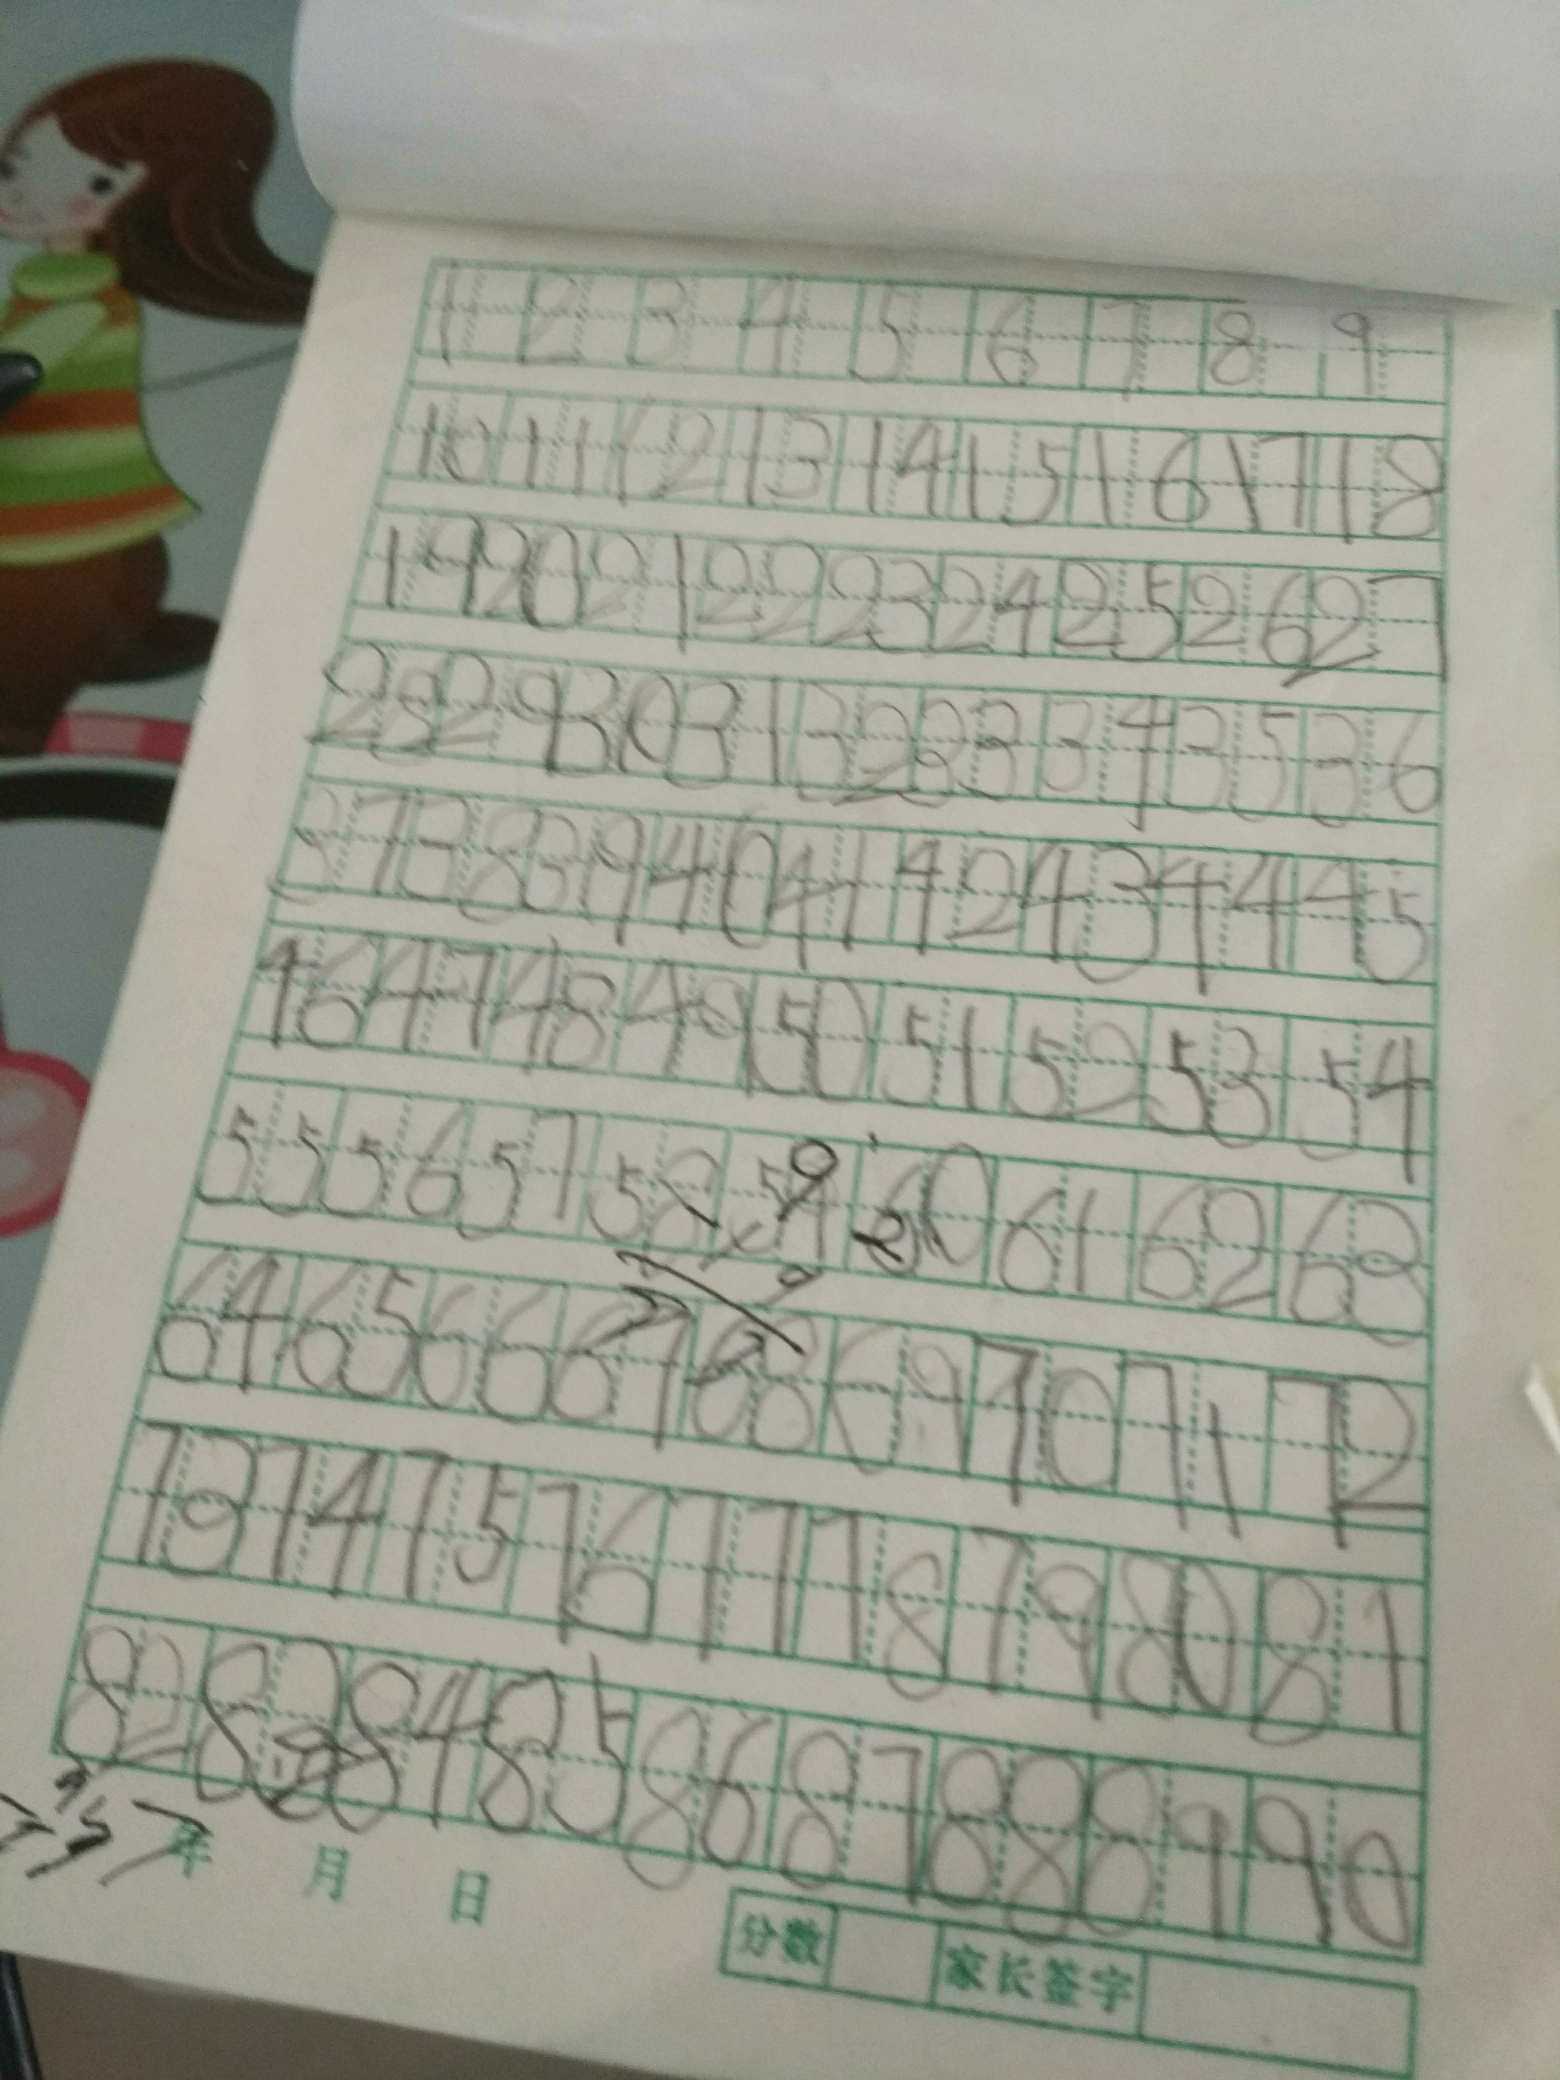 1 2 3 4 5 6 7 8 9
10 11 12 13 14 15 16 17 18
19 20 21 22 23 24 25 26 27
28 29 30 31 32 33 34 35 36
37 38 39 40 41 42 43 44 45
46 47 48 49 50 51 52 53 54
55 56 57 58 59 60 61 62 63
64 65 66 67 68 69 70 71 72
73 74 75 76 77 78 79 80 81
82 83 84 85 86 87 88 89 90
年 月 日
分数 家长签字